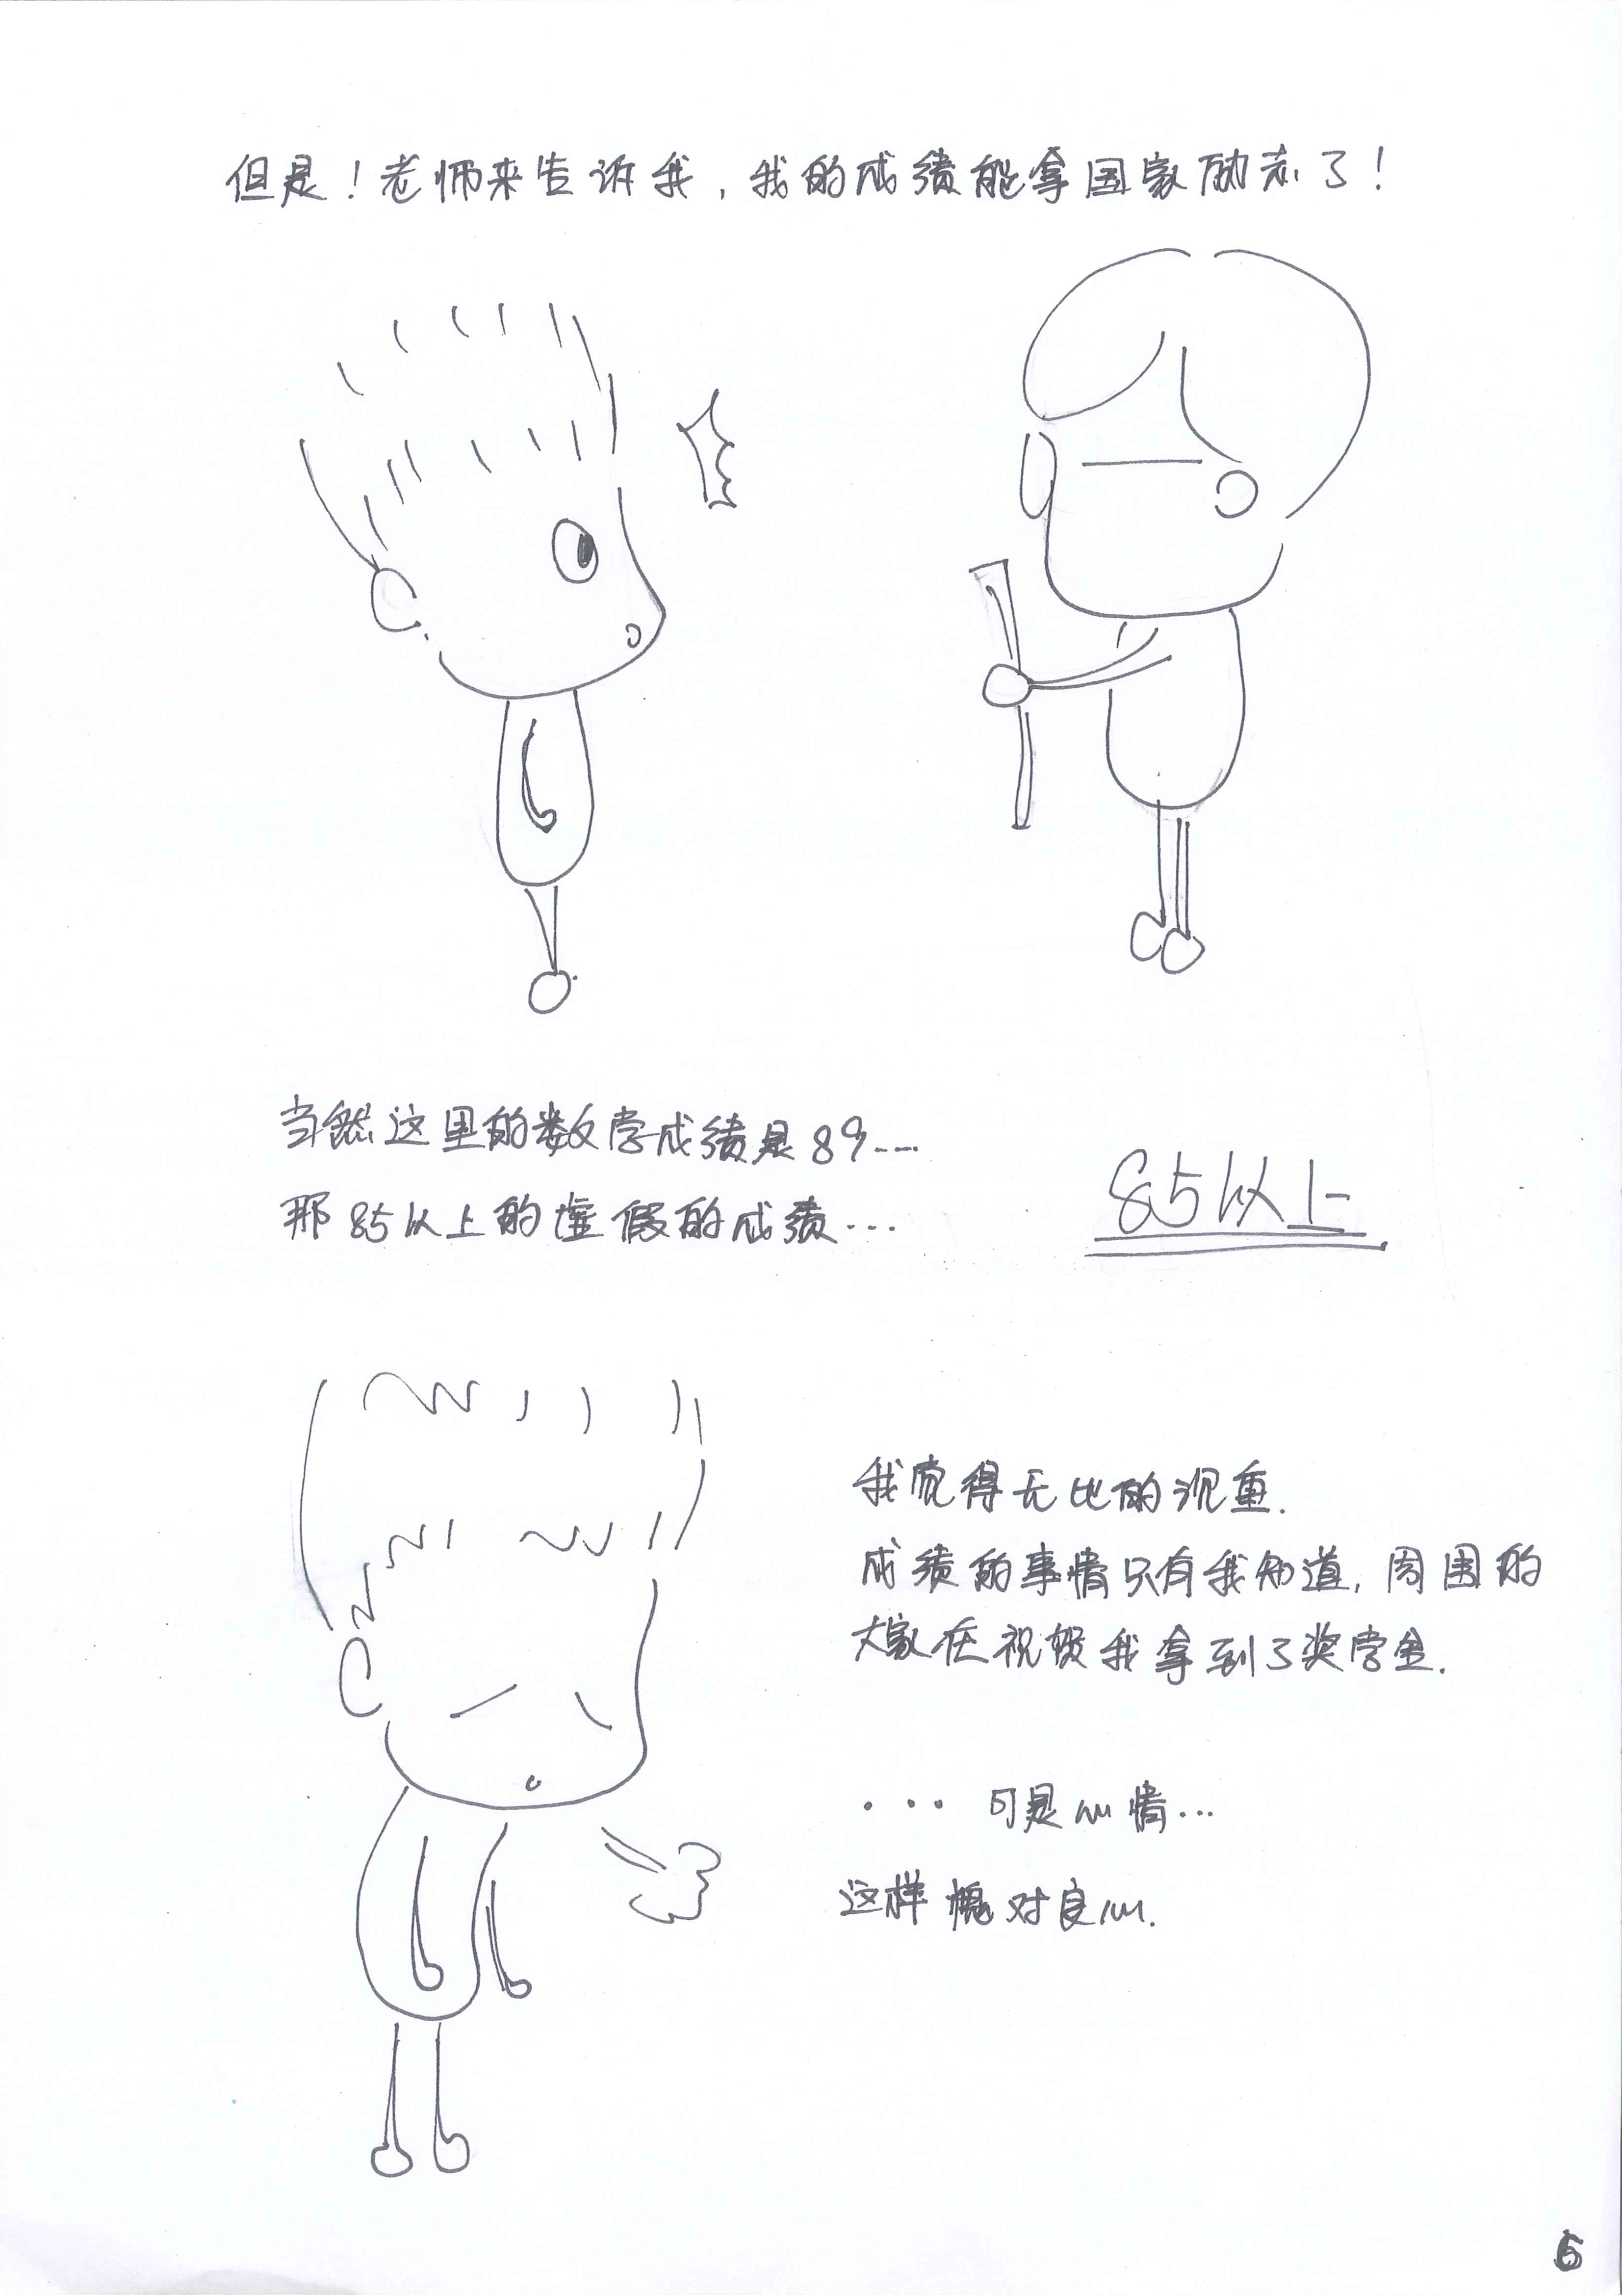 但是！老师来告诉我，我的成绩能拿国家励志了！
当然这里的数学成绩是89……
那85以上的虚假的成绩…
85以上
我觉得无比的沉重.
成绩的事情只有我知道，周围的
大家在祝贺我拿到了奖学金.
... 可是心情...
这样愧对良心.
6